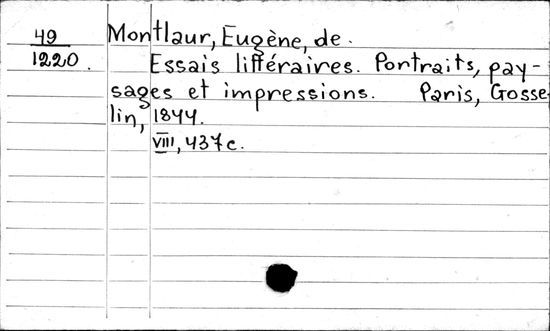 49 Montlaur, Eugène, de.
1220. Essais littéraires. Portraits, pay-
sages et impressions. Paris, Gosse-
lin, 1844.
VIII, 437 c.